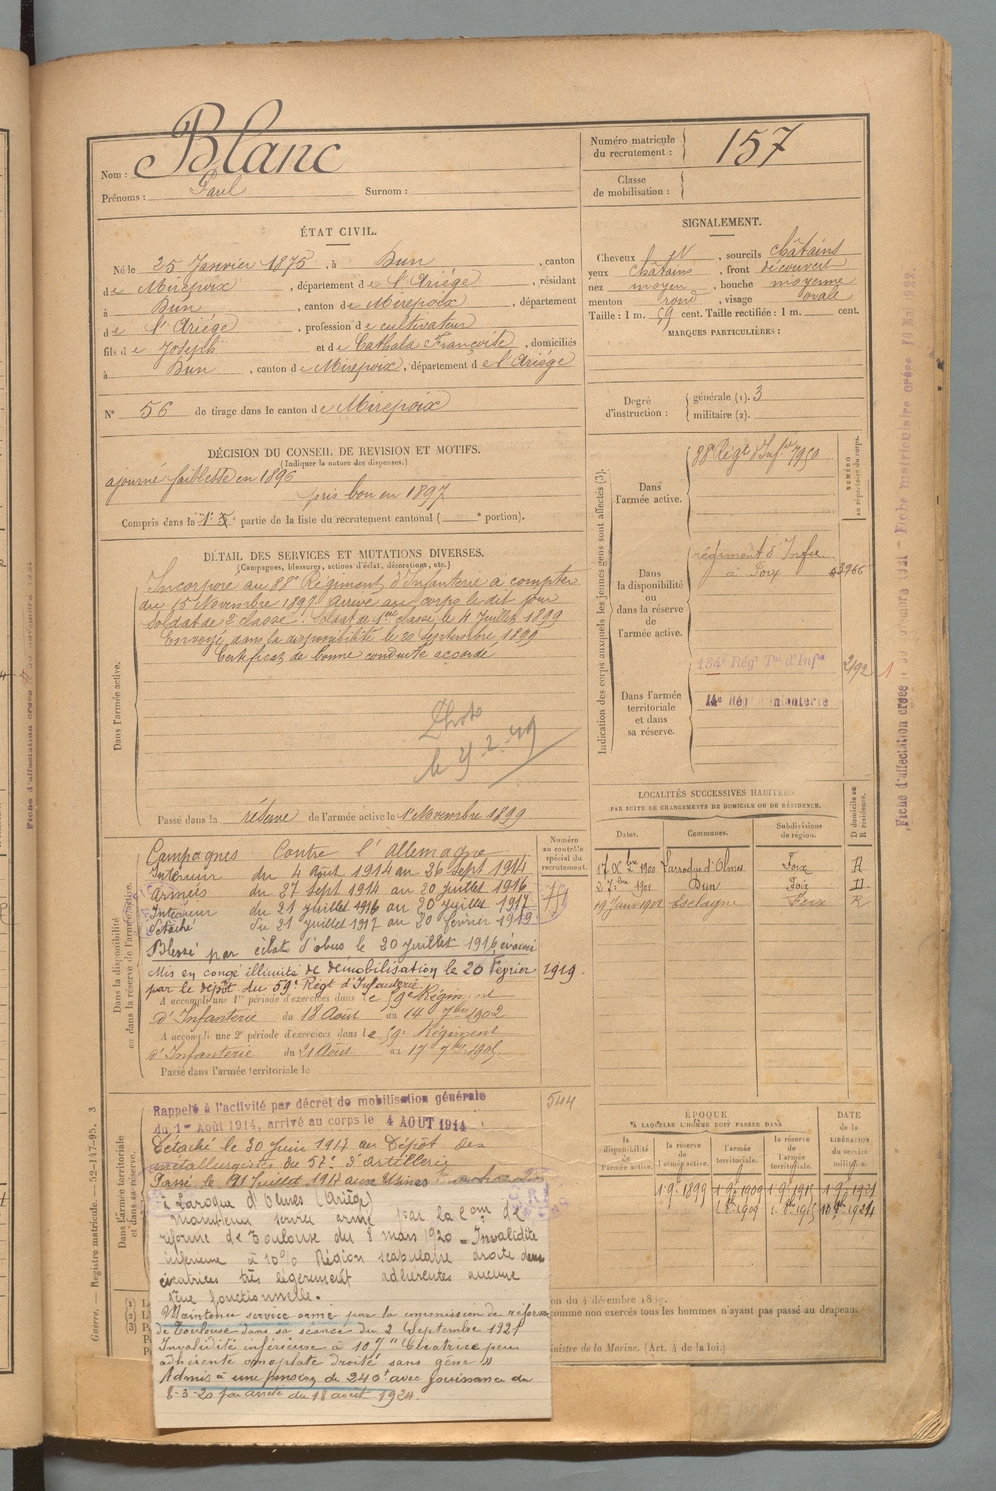 Nom : Blanc
Prénoms : Paul Surnom :
Numéro matricule du recrutement : 157
Classe de mobilisation :
ÉTAT CIVIL.
Né le 25 Janvier 1875, à Dun, canton
de Mirepoix, département de l'Ariége, résidant
à Dun, canton de Mirepoix, département
de l'Ariége, profession de cultivateur
fils de Joseph et de Cathala Françoise, domiciliés
à Dun, canton de Mirepoix, département de l'Ariége
N° 56 de tirage dans le canton de Mirepoix
SIGNALEMENT.
Cheveux, sourcils châtains
yeux châtains, front découvert
nez moyen, bouche moyenne
menton rond, visage ovale
Taille : 1 m. 59 cent. Taille rectifiée : 1 m. cent.
MARQUES PARTICULIÈRES :
Degré d'instruction : générale (1). 3
militaire (2).
DÉCISION DU CONSEIL DE REVISION ET MOTIFS.
(Indiquer la nature des dispenses.)
ajourné faiblesse en 1896
pris bon en 1897
Compris dans la 1e partie de la liste du recrutement cantonal ( e portion).
DÉTAIL DES SERVICES ET MUTATIONS DIVERSES.
(Campagnes, blessures, actions d'éclat, décorations, etc.)
Dans l'armée active.
Incorporé au 88e Régiment d'Infanterie à compter
du 15 Novembre 1897. Arrivé au corps le dit jour
Soldat de 2e classe. Soldat de 1re classe le 11 Juillet 1899
Envoyé dans la disponibilité le 20 Septembre 1899
Certificat de bonne conduite accordé
Passé dans la réserve de l'armée active le 1er Novembre 1899
Indication des corps auxquels les jeunes gens sont affectés (3).
NUMÉRO au répertoire du corps.
Dans l'armée active.
88e Régt d'Infie 7950
Dans la disponibilité ou dans la réserve de l'armée active.
régiment d'Infie
à Foix 03966
Dans l'armée territoriale et dans sa réserve.
134e Régt Tal d'Infie 2/92
14e Régt Infanterie
LOCALITÉS SUCCESSIVES HABITÉES
PAR SUITE DE CHANGEMENTS DE DOMICILE OU DE RÉSIDENCE.
Dates. Communes. Subdivisions de région. D domicile ou R résidence.
17 Xbre 1900 Larroque d'Olmes Foix R
27 1901 Dun Foix D
19 Janv 1902 Esclagne Foix R
Dans la disponibilité ou dans la réserve de l'armée active.
Numéro au contrôle spécial du recrutement.
Campagnes Contre l'Allemagne
Intérieur du 4 Août 1914 au 26 Sept 1914
Armées du 27 Sept 1914 au 20 juillet 1916
Intérieur du 21 juillet 1916 au 20 juillet 1917
Détaché du 21 juillet 1917 au 20 février 1919
Blessé par éclat d'obus le 20 juillet 1916, évacué
Mis en congé illimité de démobilisation le 20 Février 1919.
par le dépôt du 59e Régt d'Infanterie
A accompli une 1re période d'exercices dans le 59e Régiment
d'Infanterie du 18 Août au 14 7bre 1902
A accompli une 2e période d'exercices dans le 59e Régiment
d'Infanterie du 21 Août au 17 7bre 1905
Passé dans l'armée territoriale le
544
Dans l'armée territoriale et dans sa réserve.
Rappelé à l'activité par décret de mobilisation générale
du 1er Août 1914, arrivé au corps le 4 AOUT 1914
Détaché le 30 Juin 1917 au Dépôt des
métallurgistes du 57e d'artillerie
Passé le 21 Juillet 1917 aux Usines
à Laroque d'Olmes (Ariège)
Maintenu service armé par la Com de
réforme de Toulouse du 8 mars 1920 - Invalidité
inférieure à 10% Région scapulaire droite deux
cicatrices très légèrement adhérentes aucune
gêne fonctionnelle.
Maintenu service armé par la commission de réforme
de Toulouse dans sa séance du 2 Septembre 1921
Invalidité inférieure à 10% "Cicatrice peu
adhérente omoplate droite sans gêne"
Admis à une pension de 240f avec jouissance du
8-3-20 par arrêté du 18 août 1924.
ÉPOQUE
À LAQUELLE L'HOMME DOIT PASSER DANS
la disponibilité de l'armée active. la réserve de l'armée active. l'armée territoriale. la réserve de l'armée territoriale.
DATE de la LIBÉRATION du service militaire.
on du 4 décembre 1889.
comme non exercés tous les hommes n'ayant pas passé au drapeau.
inistre de la Marine. (Art. 4 de la loi.)
Guerre. — Registre matricule — 52-147-95. 3